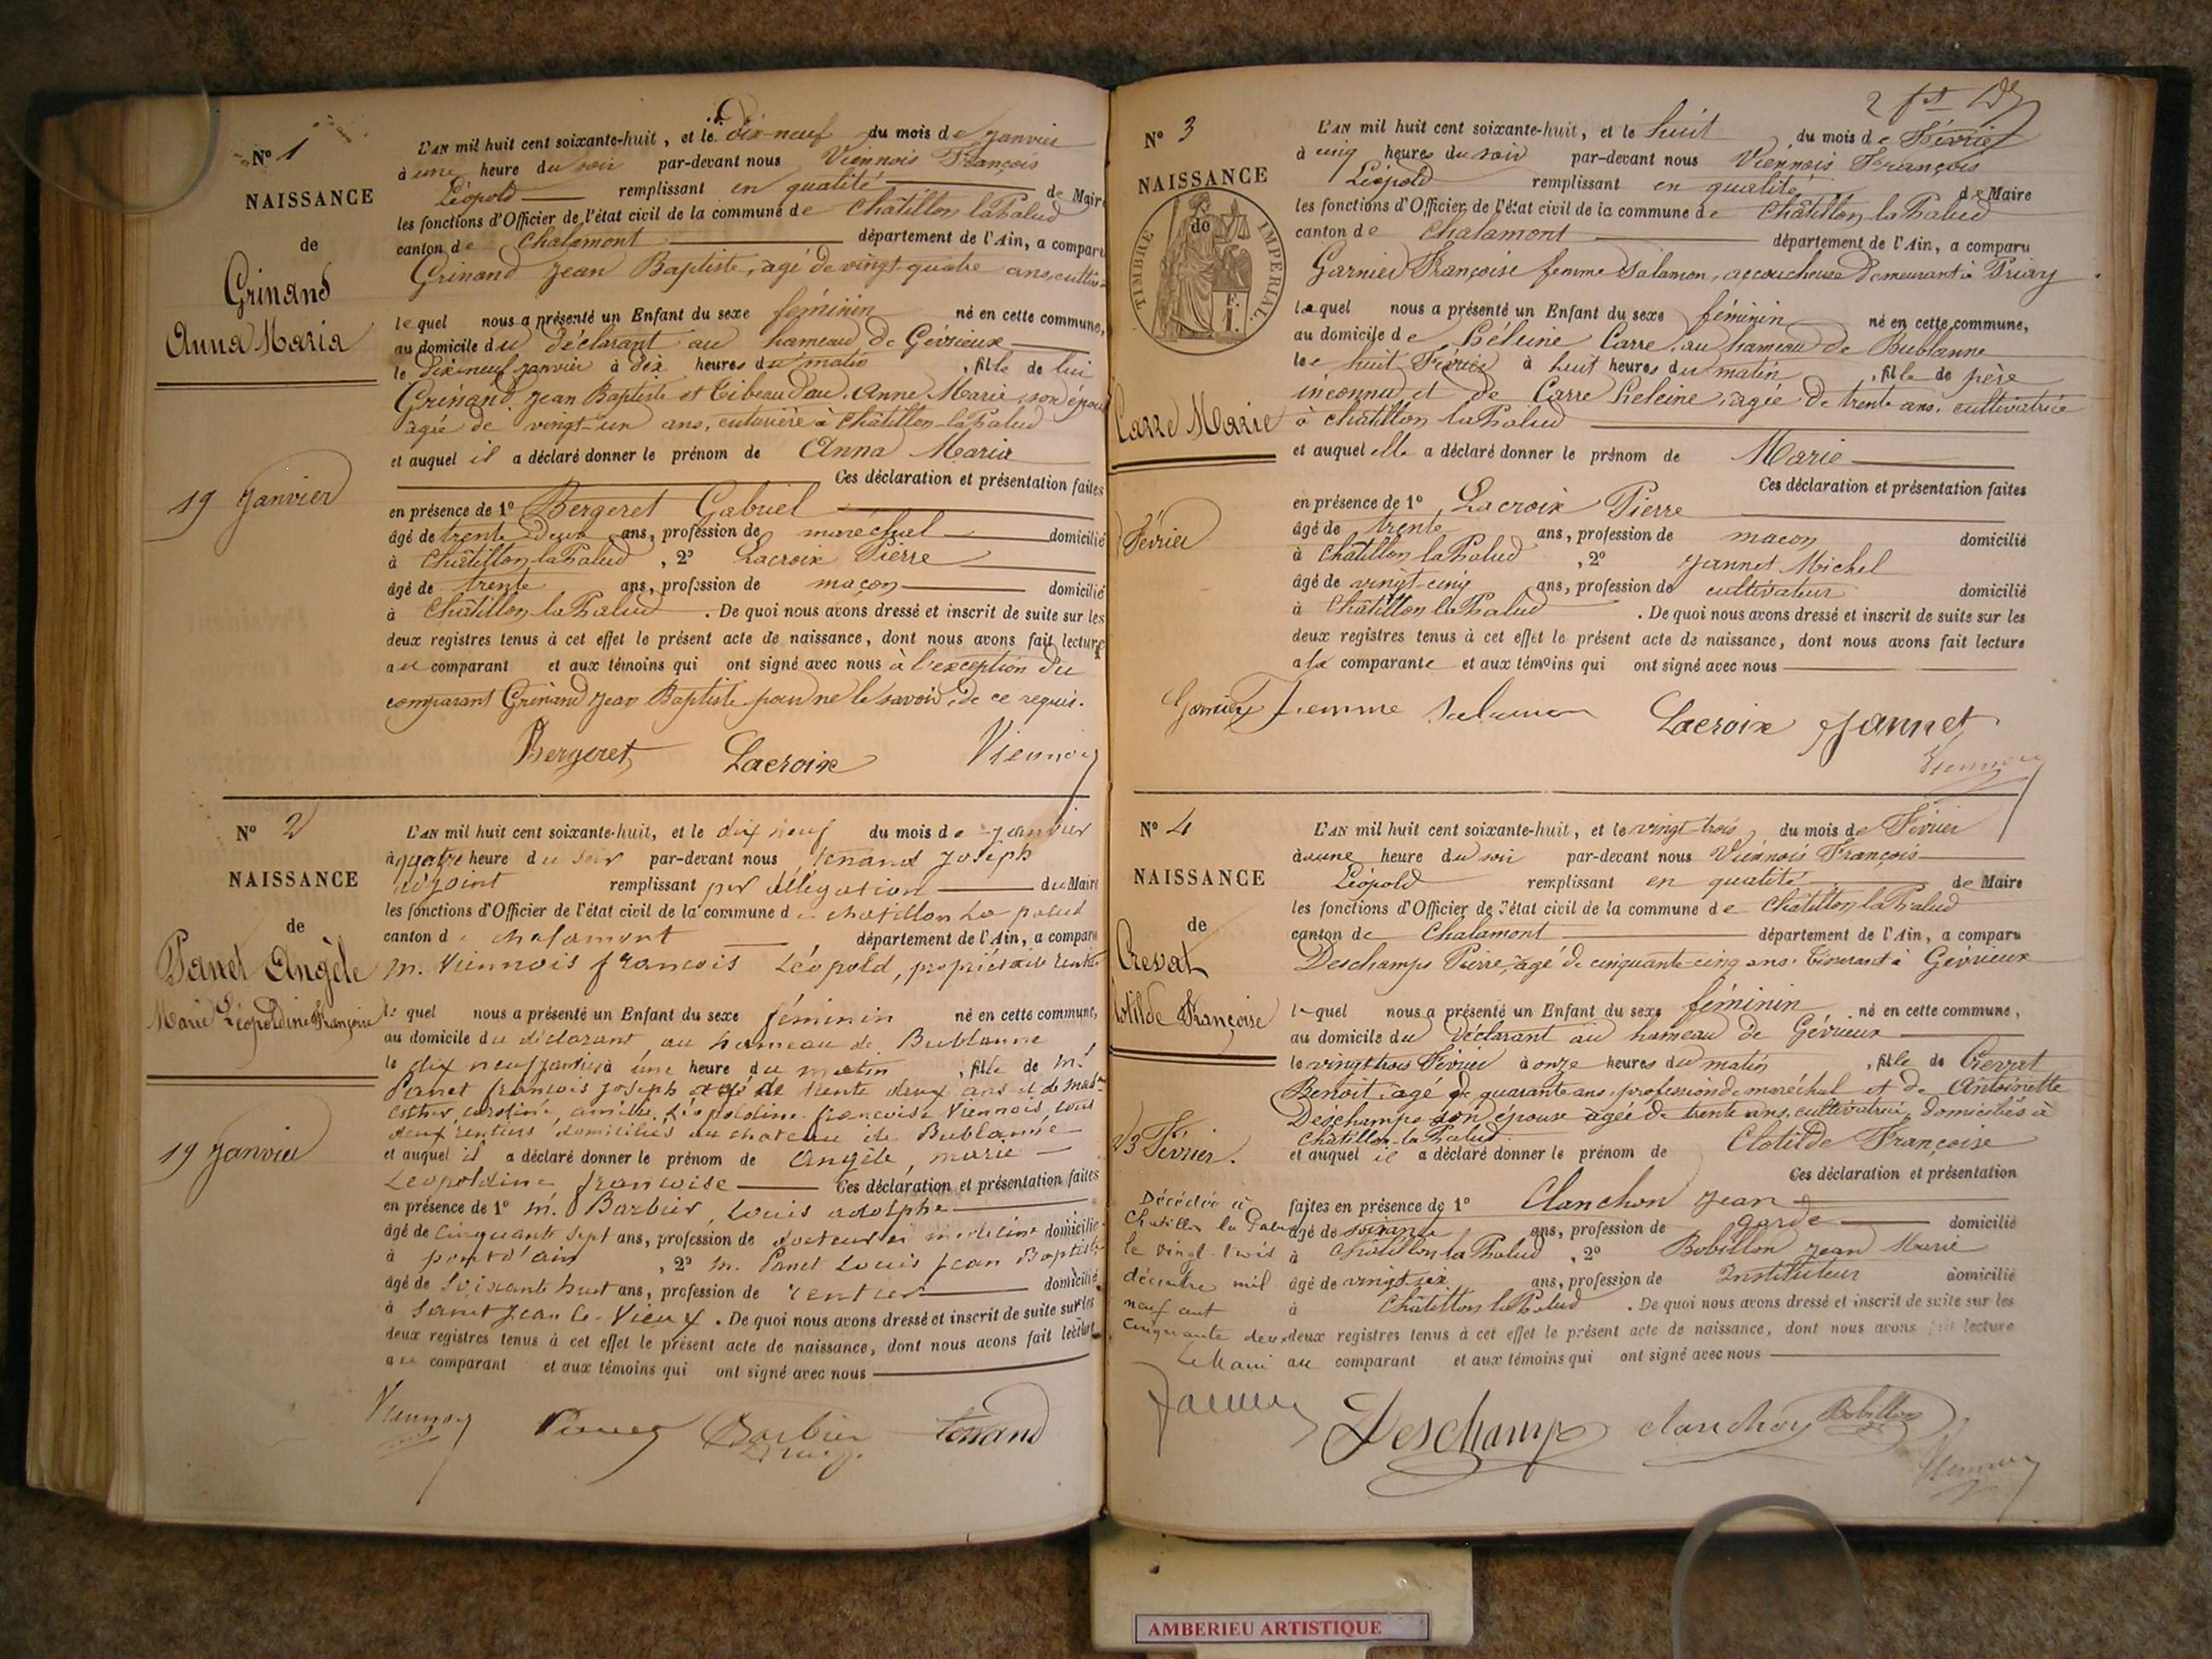 N° 1
NAISSANCE
de
Grinand
Anna Maria
19 Janvier
L'AN mil huit cent soixante-huit, et le dix-neuf du mois de Janvier
à une heure du soir par-devant nous Viennois François
Léopold remplissant en qualité de Maire
les fonctions d'Officier de l'état civil de la commune de Châtillon laPalud
canton de Chalamont département de l'Ain, a comparu
Grinand Jean Baptiste, agé de vingt-quatre ans, cultiv
lequel nous a présenté un Enfant du sexe féminin né en cette commune,
au domicile du déclarant au hameau de Gévrieux
le dix-neuf janvier à dix heures du matin, fille de lui
Grinand Jean Baptiste et Tibeaudau Anne Marie, son épouse
agée de vingt-un ans, couturière à Châtillon-la-Palud
et auquel il a déclaré donner le prénom de Anna Maria
Ces déclaration et présentation faites
en présence de 1° Bergeret Gabriel
âgé de trente deux ans, profession de maréchal domicilié
à Châtillon laPalud, 2° Lacroix Pierre
âgé de trente ans, profession de maçon domicilié
à Châtillon la Palud. De quoi nous avons dressé et inscrit de suite sur les
deux registres tenus à cet effet le présent acte de naissance, dont nous avons fait lecture
au comparant et aux témoins qui ont signé avec nous à l'exception du
comparant Grinand Jean Baptiste pour ne le savoir, de ce requis.
Bergeret Lacroix Viennois
N° 2
NAISSANCE
de
Panet Angèle
Marie Léopoldine Françoise
19 Janvier
L'AN mil huit cent soixante-huit, et le dix neuf du mois de Janvier
à quatre heure du soir par-devant nous Tenand Joseph
adjoint remplissant par délégation du Maire
les fonctions d'Officier de l'état civil de la commune de chatillon La palud
canton de chalamont département de l'Ain, a comparu
M. Viennois francois Léopold, propriétaire rentier
le quel nous a présenté un Enfant du sexe féminin né en cette commune,
au domicile du déclarant, au hameau de Bublanne
le dix neuf janvier à une heure du matin, fille de Mr
Panet francois Joseph agé de trente deux ans et de mad
Esther caroline amélie Léopoldine francoise Viennois, tous
deux rentiers domiciliés au chateau de Bublanne
et auquel il a déclaré donner le prénom de Angèle, marie
Leopoldine francoise Ces déclaration et présentation faites
en présence de 1° M. Barbier, Louis adolphe
âgé de cinquante sept ans, profession de docteur en medecine domicilié
à pont d'ain, 2° M. Panet Louis Jean Baptiste
âgé de soixante huit ans, profession de rentier domicilié
à Saint Jean le Vieux. De quoi nous avons dressé et inscrit de suite sur les
deux registres tenus à cet effet le présent acte de naissance, dont nous avons fait lecture
au comparant et aux témoins qui ont signé avec nous
Viennois Panet Barbier Tenand
N° 3
NAISSANCE
de
TIMBRE IMPERIAL
Carre Marie
Février
L'AN mil huit cent soixante-huit, et le huit du mois de Février
à cinq heures du soir par-devant nous Viennois François
Léopold remplissant en qualité de Maire
les fonctions d'Officier de l'état civil de la commune de Châtillon la Palud
canton de Chalamont département de l'Ain, a comparu
Garnier Françoise femme Salamon, accoucheuse demeurant à Priay
laquel nous a présenté un Enfant du sexe féminin né en cette commune,
au domicile de Héleine Carre, au hameau de Bublanne
le huit Février à huit heures du matin, fille de père
inconnu et de Carre Heleine, agée de trente ans, cultivatrice
à Châtillon laPalud
et auquel elle a déclaré donner le prénom de Marie
Ces déclaration et présentation faites
en présence de 1° Lacroix Pierre
âgé de trente ans, profession de macon domicilié
à Châtillon laPalud, 2° Jannet Michel
âgé de vingt-cinq ans, profession de cultivateur domicilié
à Châtillon la Palud. De quoi nous avons dressé et inscrit de suite sur les
deux registres tenus à cet effet le présent acte de naissance, dont nous avons fait lecture
a la comparante et aux témoins qui ont signé avec nous
Garnier femme Salamon Lacroix Jannet
Viennois
N° 4
NAISSANCE
de
Crevat
Clotilde Françoise
23 Février.
Décédée à
Chatillon la Palud
le vingt-trois
décembre mil
neuf cent
cinquante deux
Le Maire
L'AN mil huit cent soixante-huit, et le vingt-trois, du mois de Février
à une heure du soir par-devant nous Viennois François
Léopold remplissant en qualité de Maire
les fonctions d'Officier de l'état civil de la commune de Châtillon la Palud
canton de Chalamont département de l'Ain, a comparu
Deschamps Pierre, agé de cinquante-cinq ans, Tisserand à Gévrieux
lequel nous a présenté un Enfant du sexe féminin né en cette commune,
au domicile du Déclarant au hameau de Gévrieux
le vingt trois Février à onze heures du matin, fille de Crevat
Benoit, agé de quarante ans, profession de maréchal et de Antoinette
Deschamps son épouse agée de trente ans, cultivatrice, domiciliés à
Châtillon-la Palud
et auquel il a déclaré donner le prénom de Clotilde Françoise
Ces déclaration et présentation
faites en présence de 1° Clanchon Jean
âgé de soixante ans, profession de garde domicilié
à Châtillon la Palud, 2° Bobillon Jean Marie
âgé de vingt-six ans, profession de Instituteur domicilié
à Châtillon la Palud. De quoi nous avons dressé et inscrit de suite sur les
deux registres tenus à cet effet le présent acte de naissance, dont nous avons fait lecture
au comparant et aux témoins qui ont signé avec nous
Deschamps Clanchon Bobillon
Viennois
AMBERIEU ARTISTIQUE